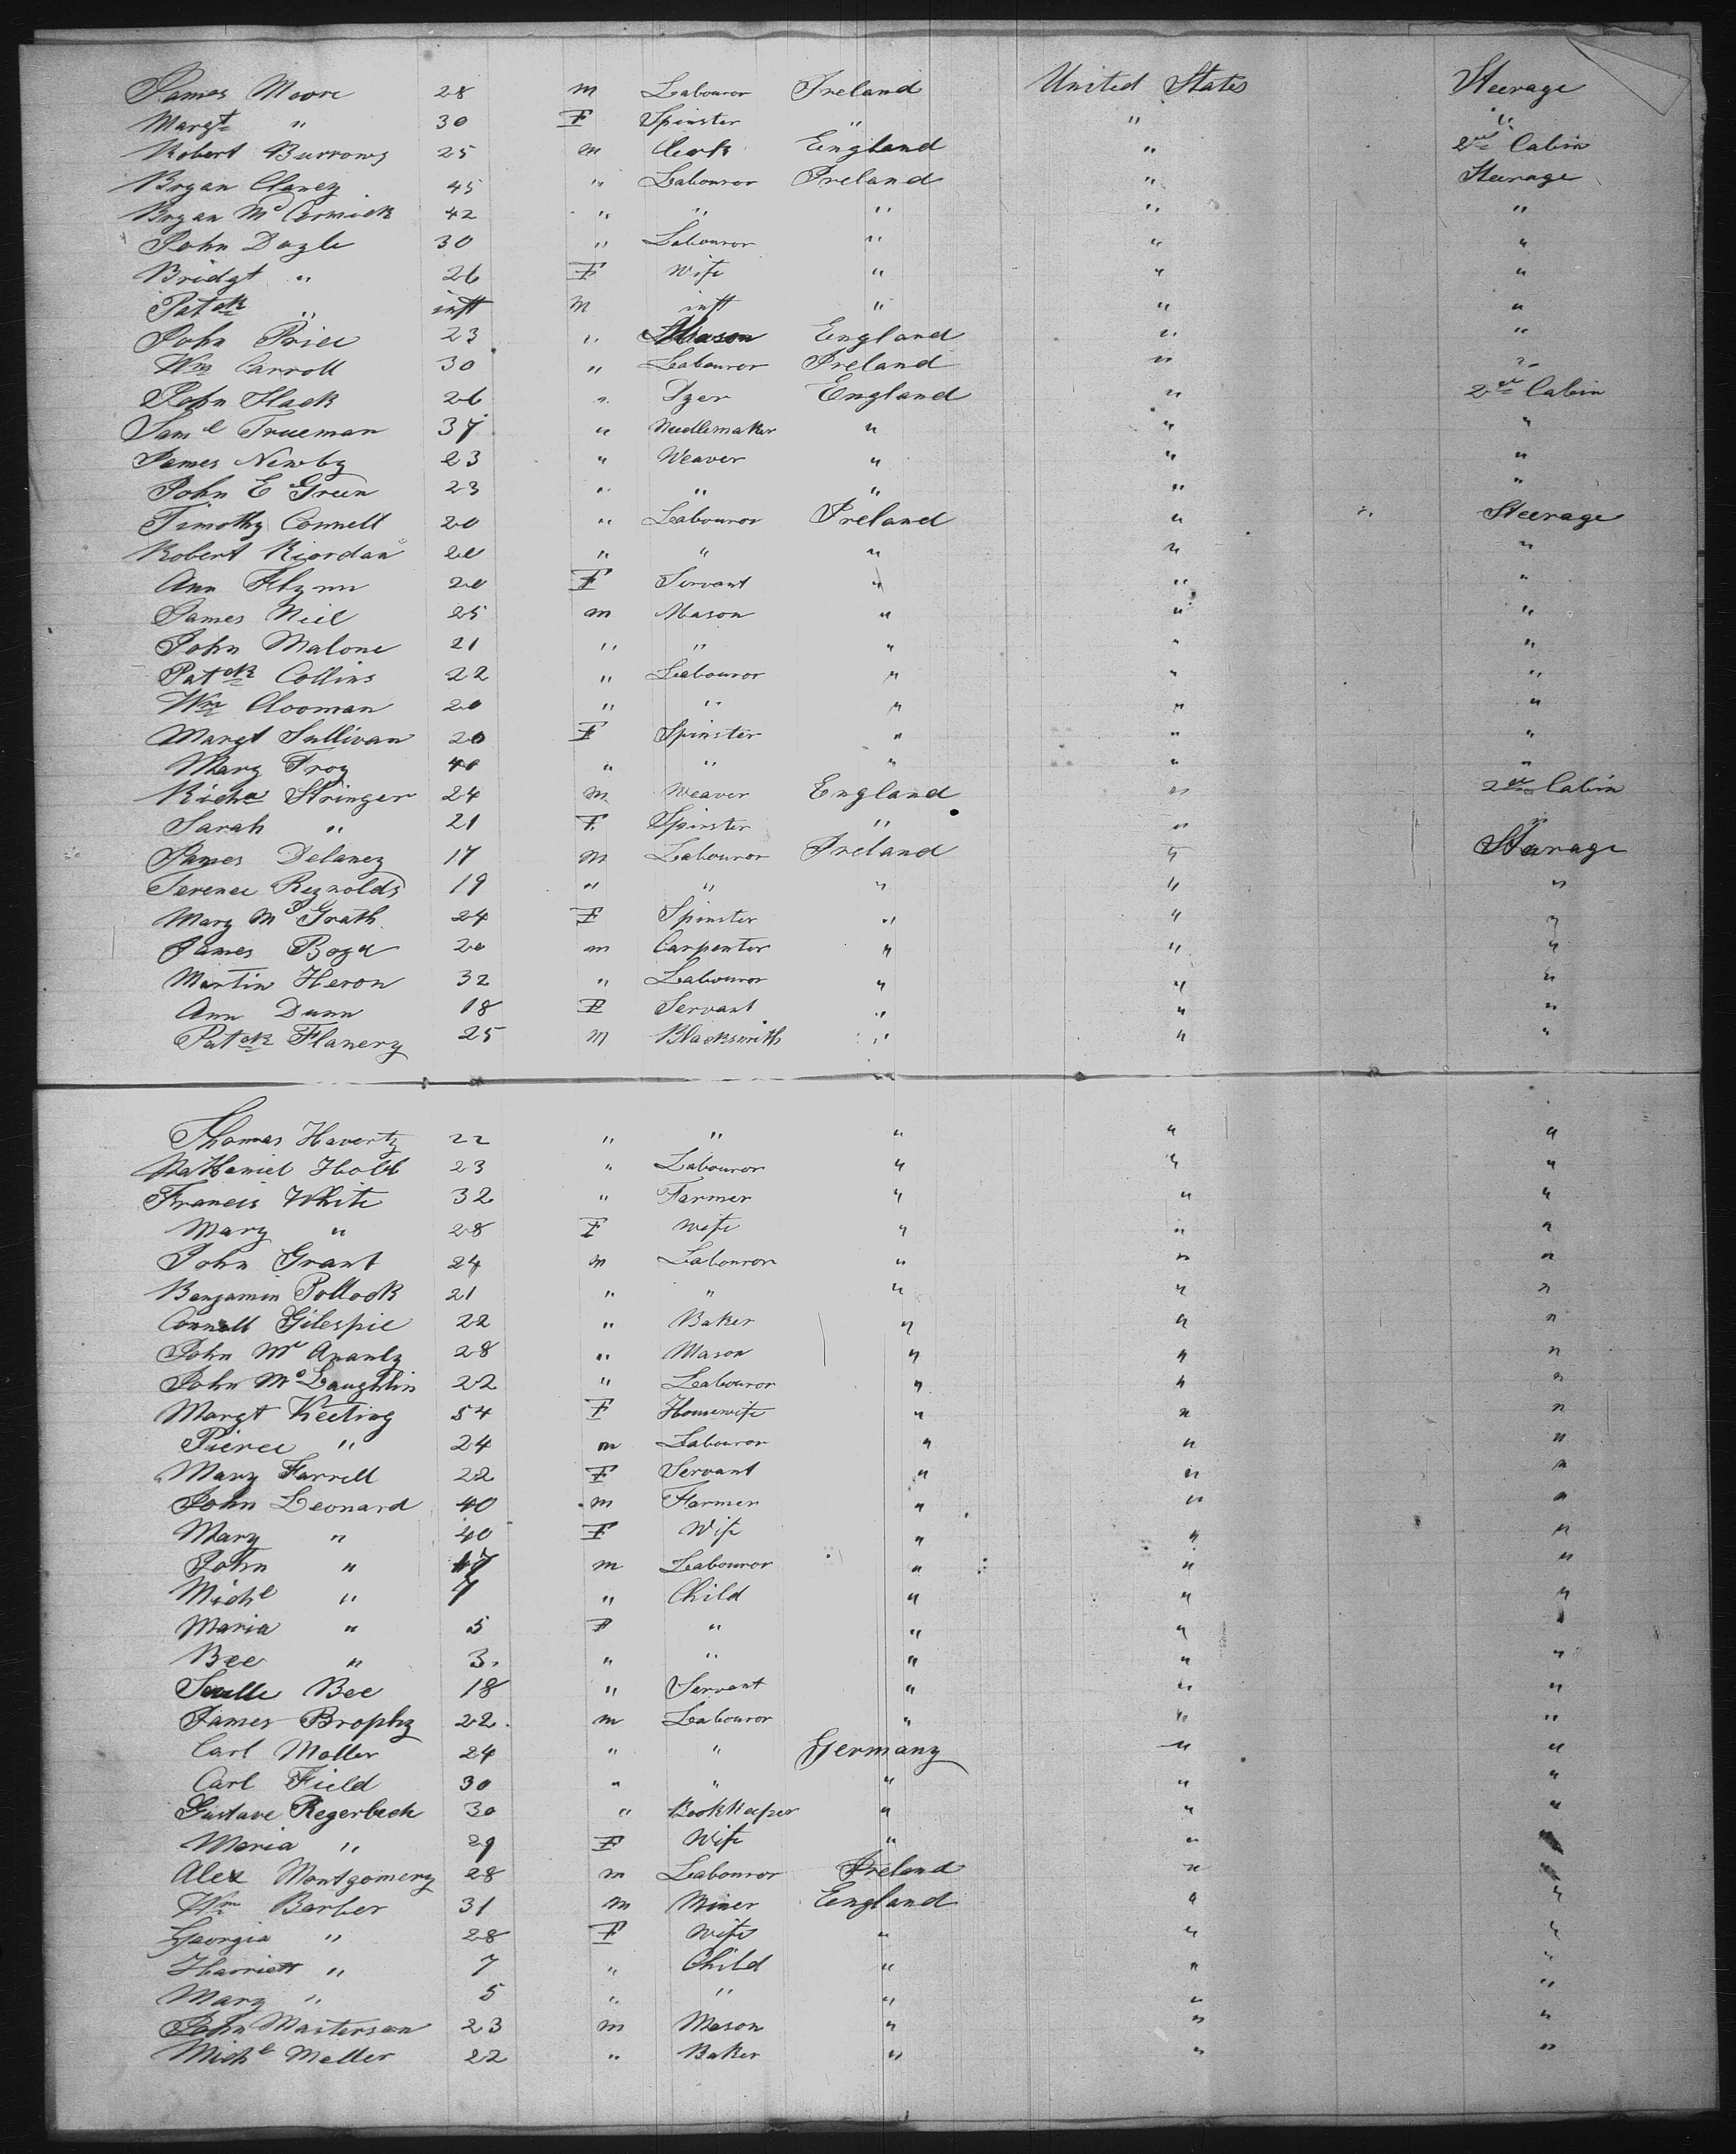 James Moore 28 m Labouror Ireland United States Steerage
Margt " 30 F Spinster " " "
Robert Burrows 25 m Clerk England " 2nd Cabin
Bryan Clancy 45 " Labouror Ireland " Steerage
Bryan McCormick 42 " " " " "
John Doyle 30 " Labouror " " "
Bridgt " 26 F Wife " " "
Patck " inft m inft " " "
John Price 23 " Mason England " "
Wm Carroll 30 " Labouror Ireland " "
John Flack 26 " Dyer England " 2nd Cabin
Saml Trueman 37 " Needlemaker " " "
James Newby 23 " Weaver " " "
John E Green 23 " " " " "
Timothy Connell 20 " Labouror Ireland " " Steerage
Robert Riordan 20 " " " " "
Ann Flynn 20 F Servant " " "
James Niel 25 m Mason " " "
John Malone 21 " " " " "
Patck Collins 22 " Labouror " " "
Wm Clooman 20 " " " " "
Margt Sullivan 20 F Spinster " " "
Mary Troy 40 " " " " "
Richd Stringer 24 m Weaver England " 2nd Cabin
Sarah " 21 F Spinster " " "
James Delaney 17 m Labouror Ireland " Steerage
Terence Reynolds 19 " " " " "
Mary McGrath 24 F Spinster " " "
James Boyd 20 m Carpenter " " "
Martin Heron 32 " Labouror " " "
Ann Dunn 18 F Servant " " "
Patck Flanery 25 m Blacksmith " " "
Thomas Haverty 22 " " " " "
Nathaniel Holt 23 " Labouror " " "
Francis White 32 " Farmer " " "
Mary " 28 F Wife " " "
John Grant 24 m Labouror " " "
Benjamin Pollock 21 " " " " "
Connell Gilespie 22 " Baker " " "
John Mc 28 " Mason " " "
John McLaughlin 22 " Labouror " " "
Margt Keeting 54 F Housewife " " "
Pierce " 24 m Labouror " " "
Mary Farrell 22 F Servant " " "
John Leonard 40 m Farmer " " "
Mary " 40 F Wife " " "
John " 17 m Labouror " " "
Michl " 7 " Child " " "
Maria " 5 F " " " "
Bee " 3 " " " " "
Bee 18 " Servant " " "
James Brophy 22 m Labouror " " "
Carl Moller 24 " " Germany " "
Carl Field 30 " " " " "
Gustave Regerbech 30 " Bookkeeper " " "
Maria " 29 F Wife " " "
Alex Montgomery 28 m Labouror Ireland " "
Wm Barber 31 m Miner England " "
Georgia " 28 F Wife " " "
Harriett " 7 " Child " " "
Mary " 5 " " " " "
John Masterson 23 m Mason " " "
Michl Meller 22 " Baker " " "